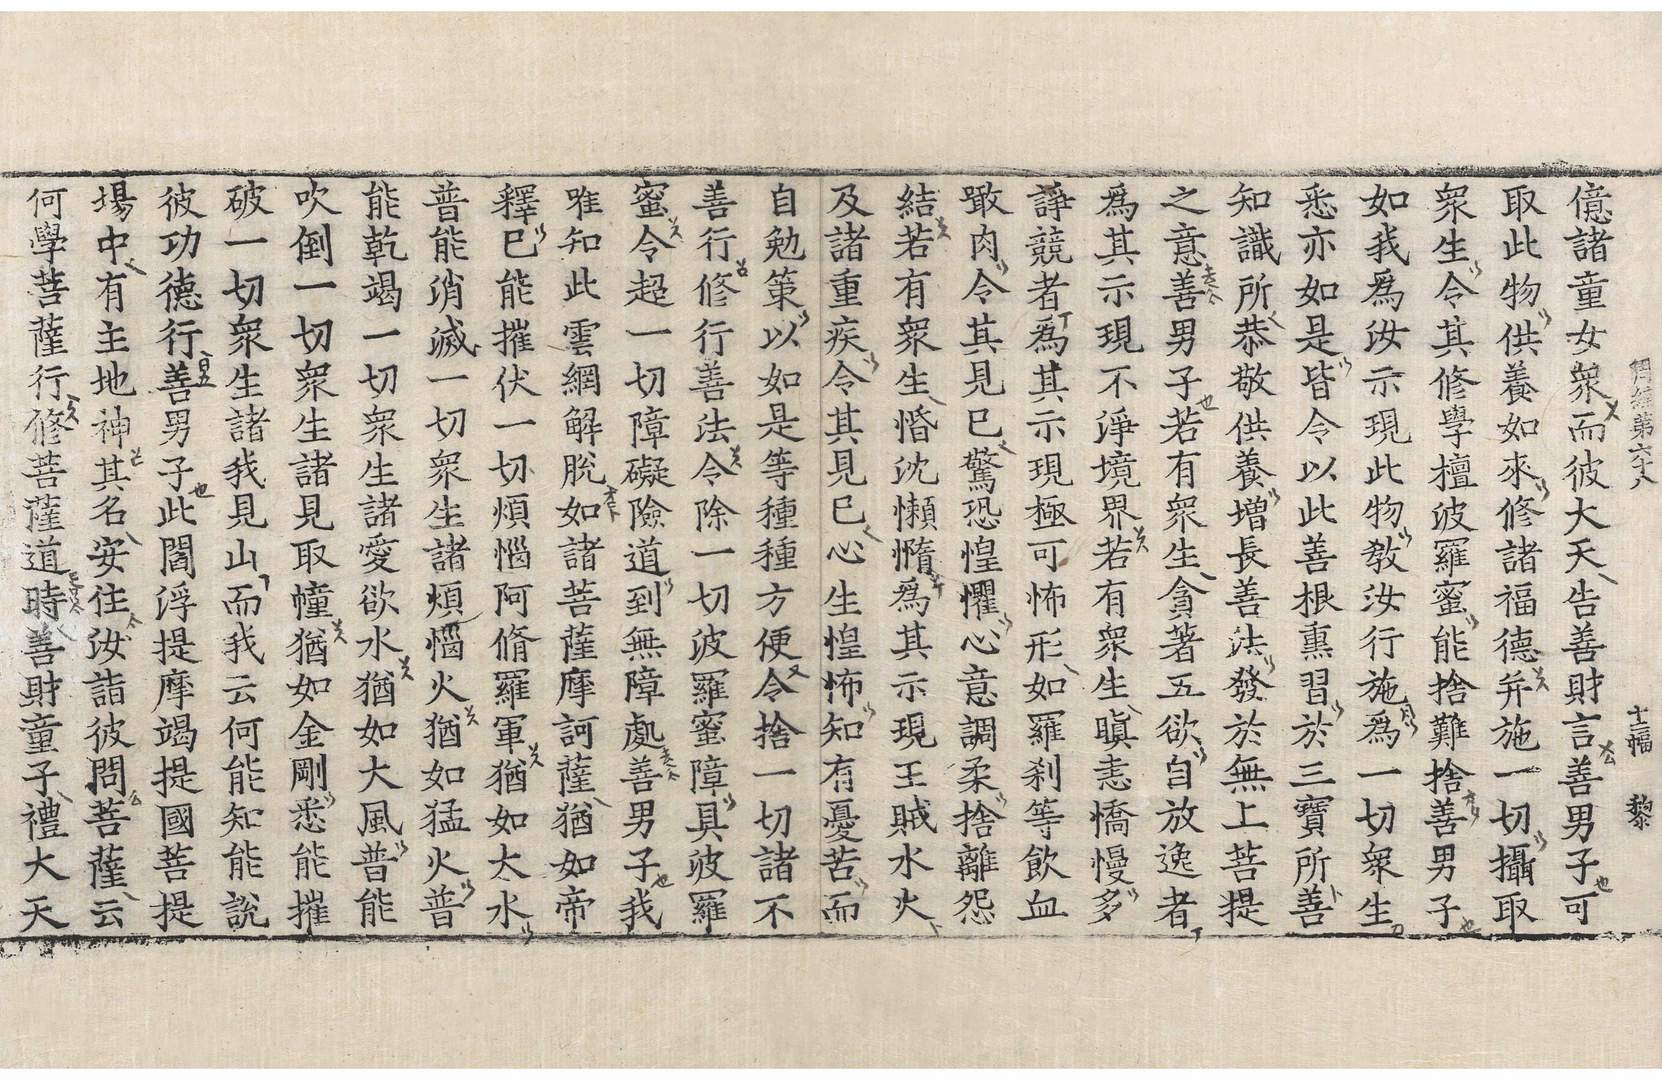 周經第六十八 十二幅 黎
億諸童女衆而彼大天告善財言善男子可
取此物供養如來修諸福德并施一切攝取
衆生令其修學檀波羅蜜能捨難捨善男子
如我爲汝示現此物教汝行施爲一切衆生
悉亦如是皆令以此善根熏習於三寶所善
知識所恭敬供養增長善法發於無上菩提
之意善男子若有衆生貪著五欲自放逸者
爲其示現不淨境界若有衆生瞋恚憍慢多
諍競者爲其示現極可怖形如羅刹等飲血
噉肉令其見已驚恐惶懼心意調柔捨離怨
結若有衆生惛沈懶惰爲其示現王賊水火
及諸重疾令其見已心生惶怖知有憂苦而
自勉策以如是等種種方便令捨一切諸不
善行修行善法令除一切波羅蜜障具波羅
蜜令超一切障礙險道到無障處善男子我
唯知此雲網解脫如諸菩薩摩訶薩猶如帝
釋已能摧伏一切煩惱阿脩羅軍猶如大水
普能消滅一切衆生諸煩惱火猶如猛火普
能乾竭一切衆生諸愛欲水猶如大風普能
吹倒一切衆生諸見取幢猶如金剛悉能摧
破一切衆生諸我見山而我云何能知能說
彼功德行善男子此閻浮提摩竭提國菩提
場中有主地神其名安住汝詣彼問菩薩云
何學菩薩行修菩薩道時善財童子禮大天